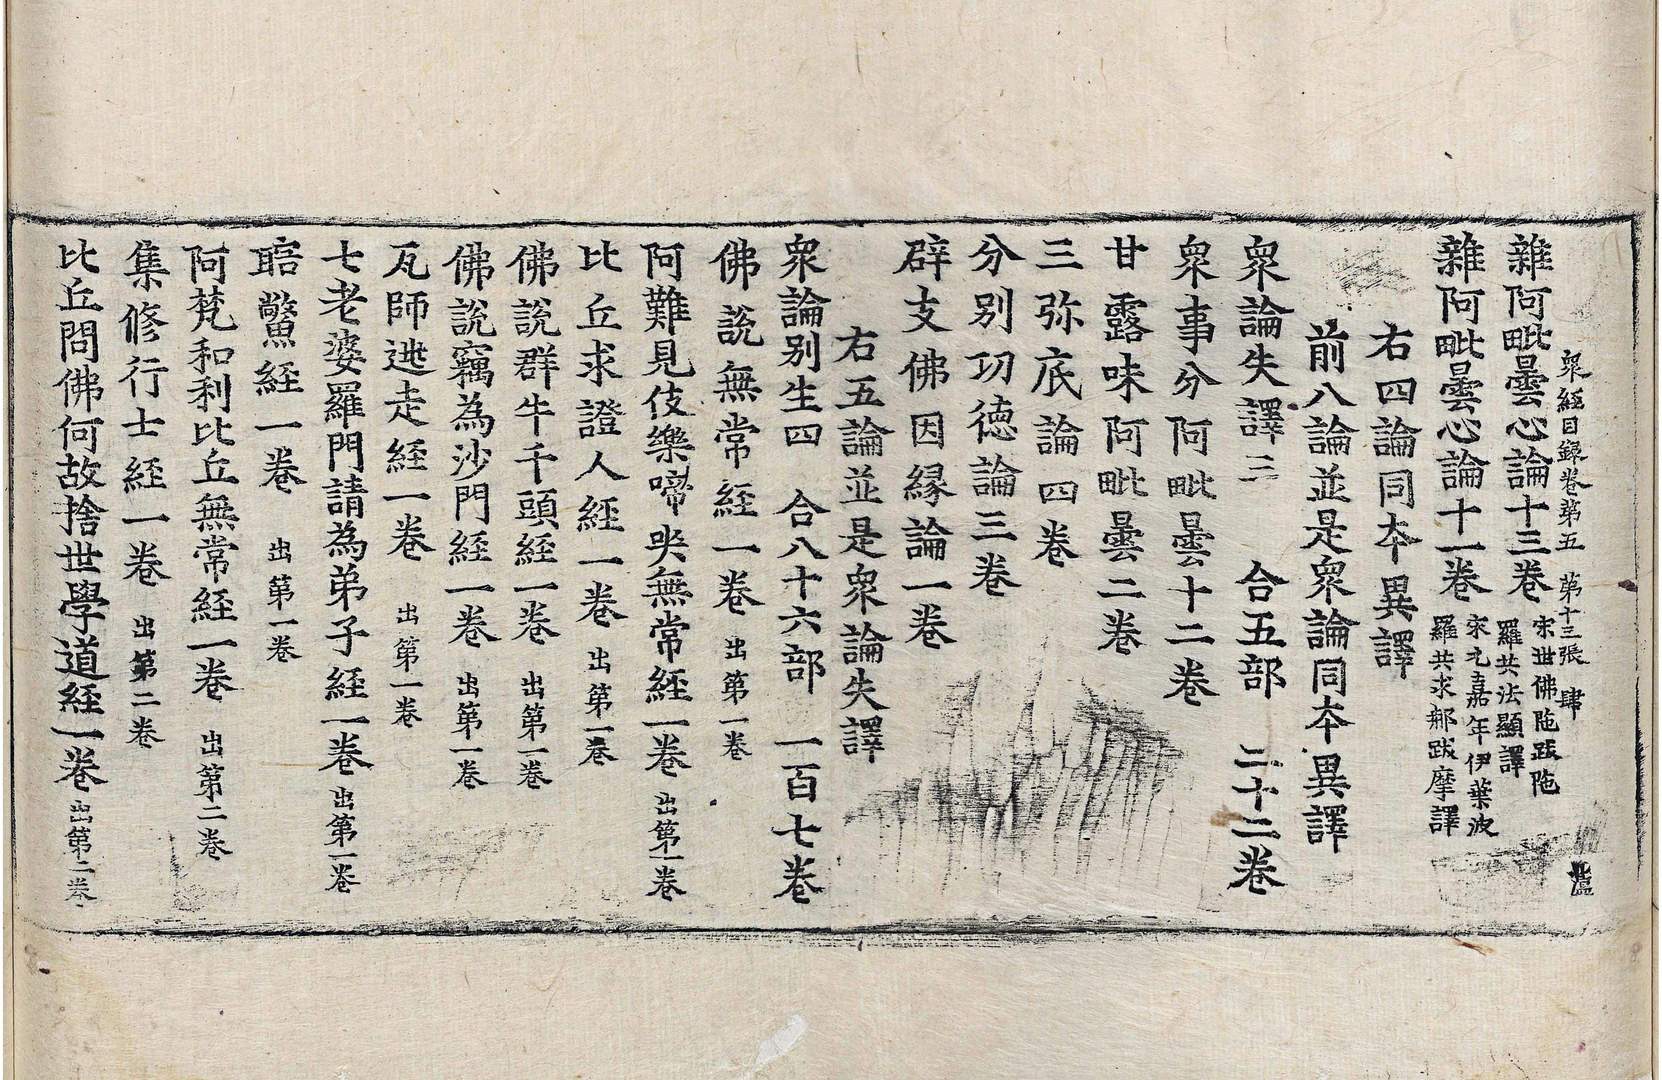 衆經目錄卷第五 第十三張 肆
雜阿毗曇心論十三卷 宋世佛陁跋陁羅共法顯譯
雜阿毗曇心論十一卷 宋元嘉年伊葉波羅共求那跋摩譯
右四論同本異譯
前八論並是衆論同本異譯
衆論失譯三 合五部 二十二卷
衆事分阿毗曇十二卷
甘露味阿毗曇二卷
三弥底論四卷
分別功德論三卷
辟支佛因緣論一卷
右五論並是衆論失譯
衆論別生四 合八十六部 一百七卷
佛說無常經一卷 出第一卷
阿難見伎樂啼哭無常經一卷 出第一卷
比丘求證人經一卷 出第一卷
佛說群牛千頭經一卷 出第一卷
佛說竊為沙門經一卷 出第一卷
瓦師逃走經一卷 出第一卷
七老婆羅門請為弟子經一卷 出第一卷
鷩經一卷 出第一卷
阿梵和利比丘無常經一卷 出第二卷
集修行士經一卷 出第二卷
比丘問佛何故捨世學道經一卷 出第二卷